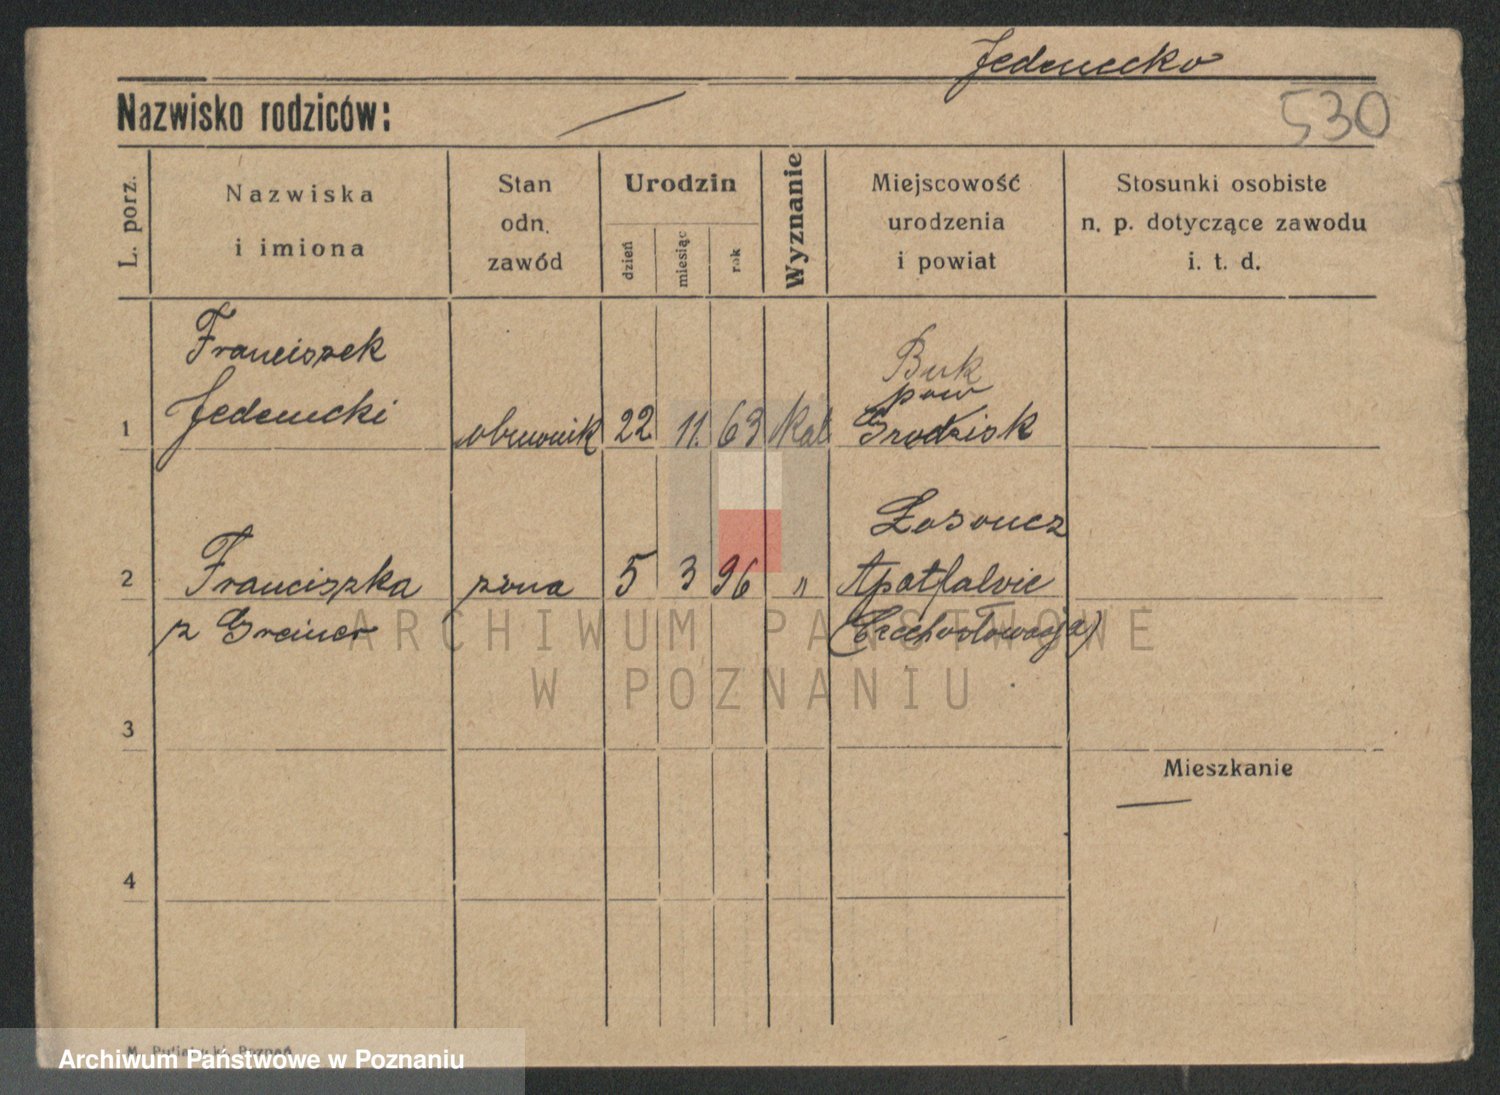 Jedenecko
Nazwisko rodziców:
530
L. porz.
Nazwiska
i imiona
Stan
odn.
zawód
Urodzin
dzień
miesiąc
rok
Wyznanie
Miejscowość
urodzenia
i powiat
Stosunki osobiste
n. p. dotyczące zawodu
i. t. d.
Franciszek
Buk
pow
1 Jedenecki 22 11. 63 kat Grodzisk
Łosoncz
2 Franciszka żona 5 3 96 " Apatfalvie
z Greiner (Czechosłowacja)
ARCHIWUM PAŃSTWOWE
W POZNANIU
3
Mieszkanie
4
Archiwum Państwowe w Poznaniu